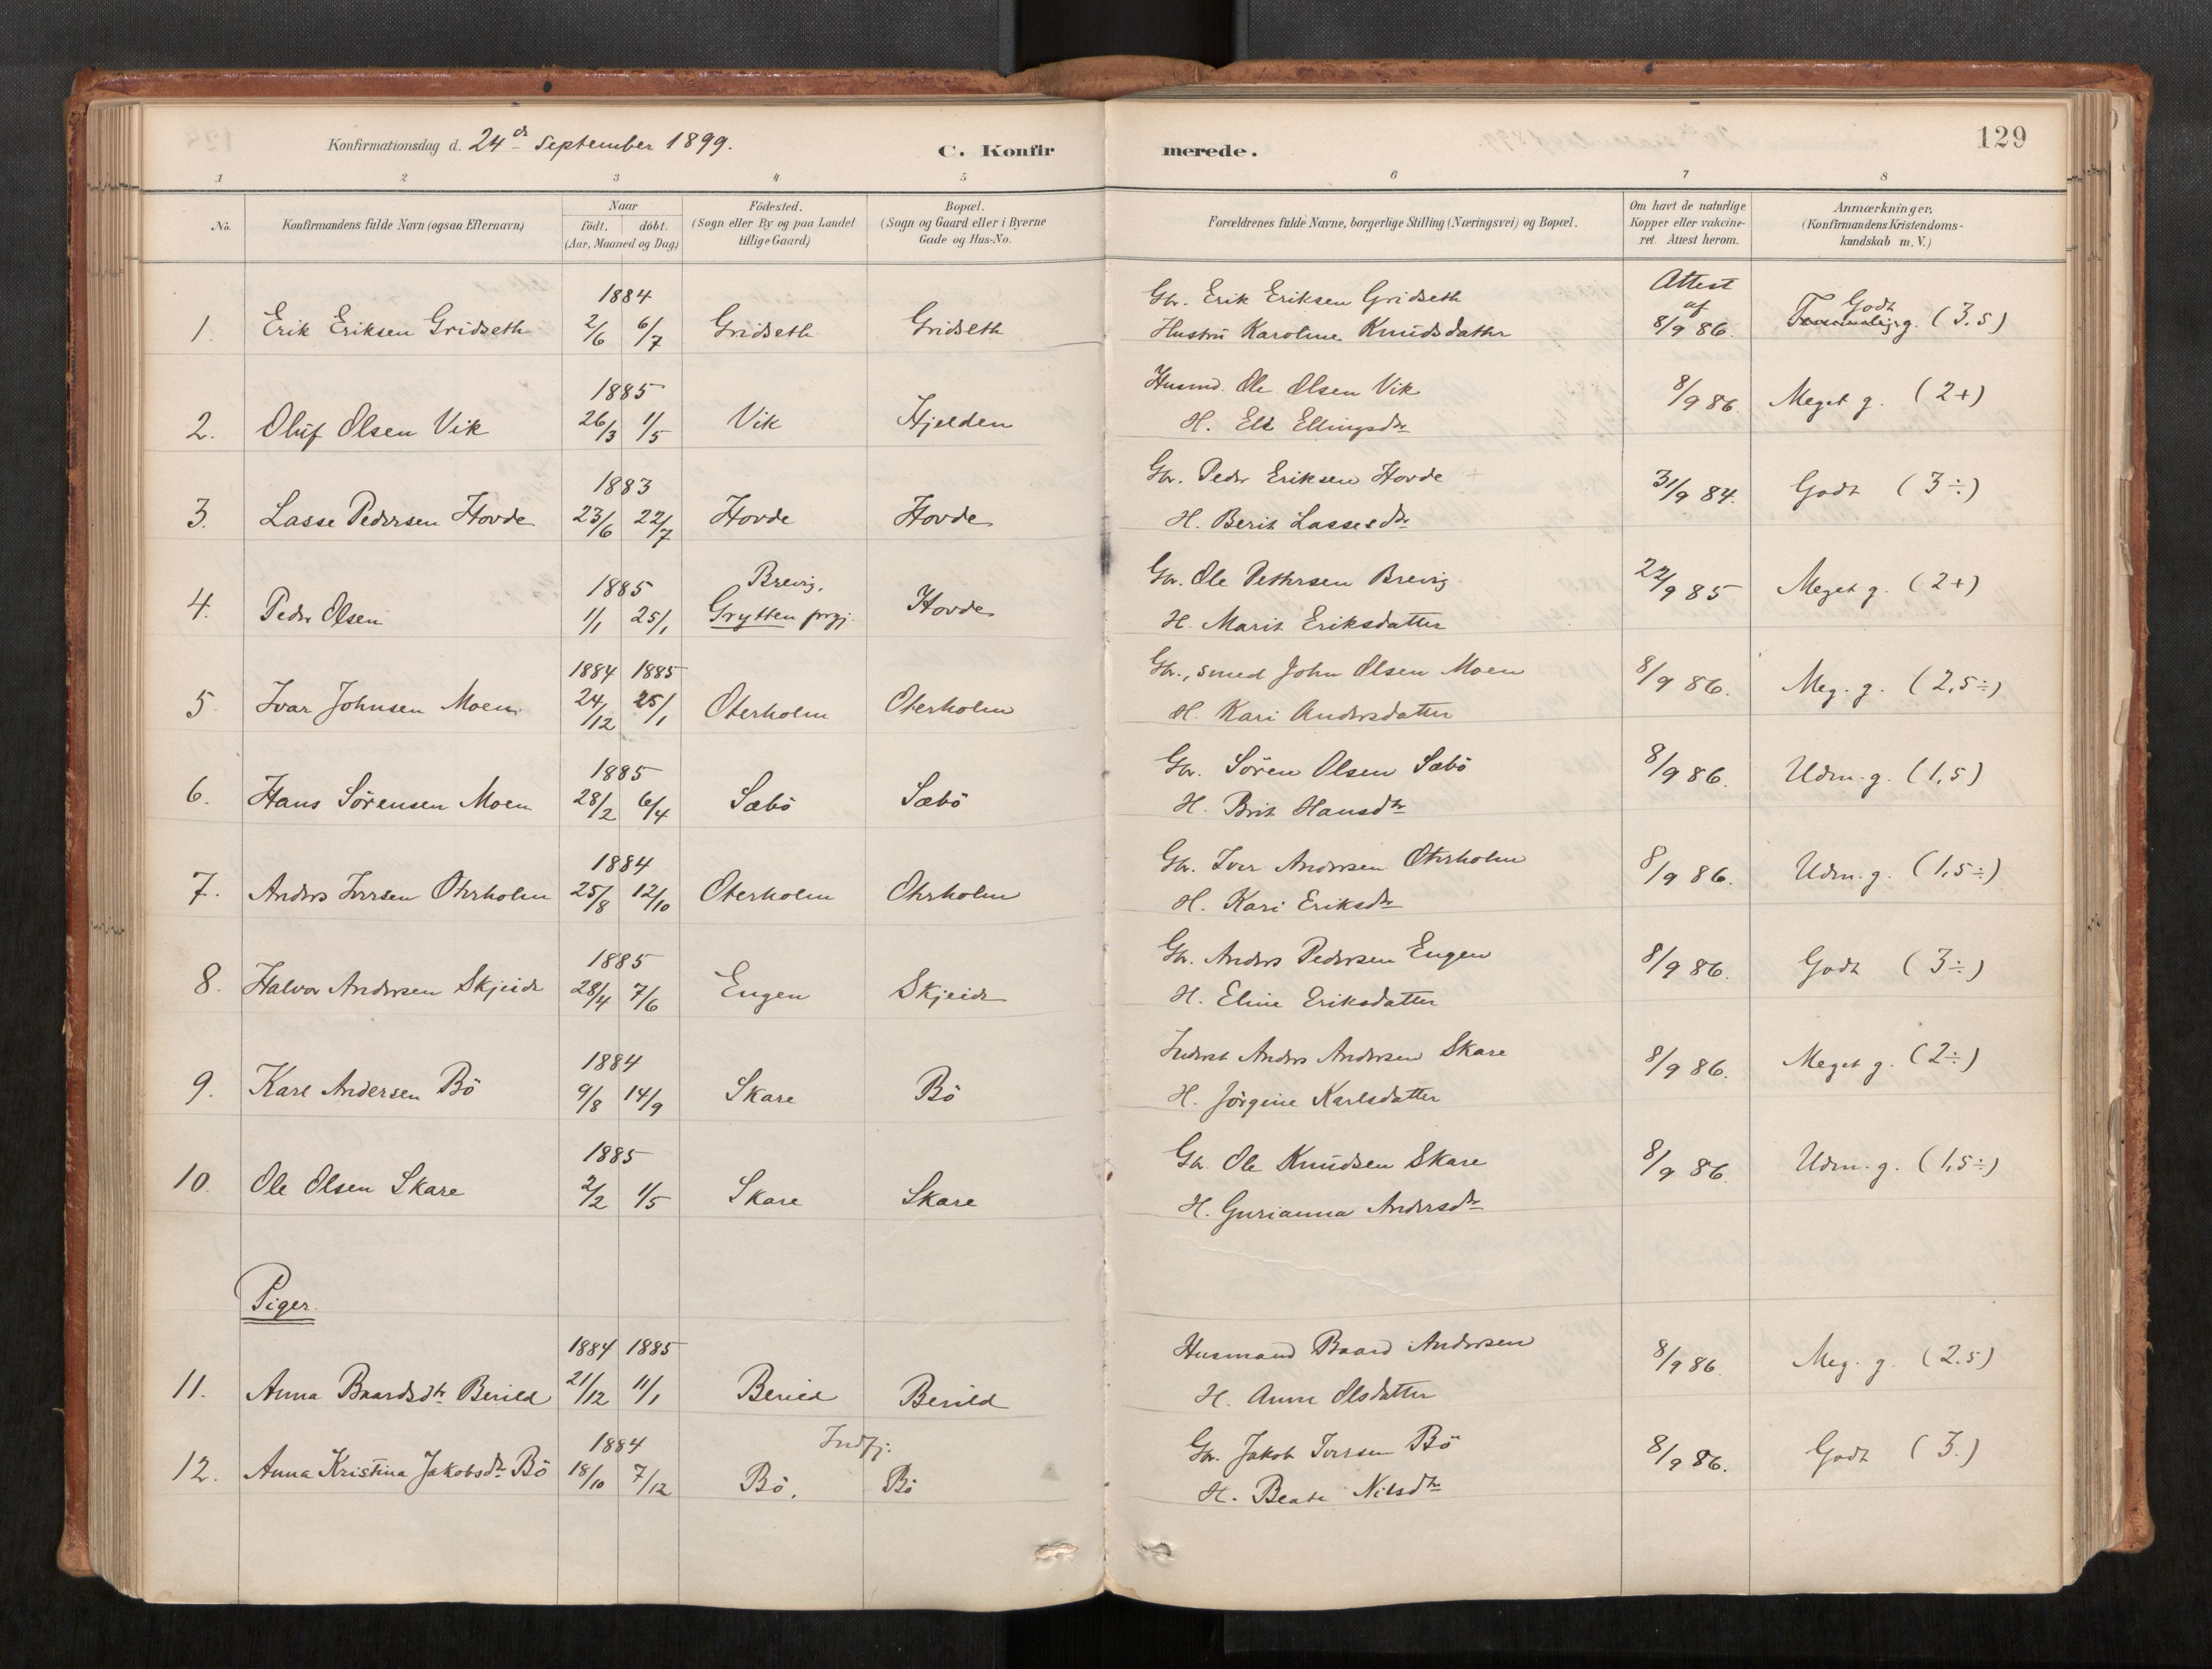 129
Konfirmationsdag d. 24de September 1899.
C. Konfirmerede.
1 2 3 4 5 6 7 8
No.
Konfirmandens fulde Navn (ogsaa Efternavn)
Naar
födt. döbt.
(Aar, Maaned og Dag)
Födested.
(Sogn eller By og paa Landet
tillige Gaard)
Bopæl.
(Sogn og Gaard eller i Byerne
Gade og Hus-No.
Forældrenes fulde Navne, borgerlige Stilling (Næringsvei) og Bopæl.
Om havt de naturlige
Kopper eller vakcine-
ret. Attest herom.
Anmærkninger.
(Konfirmandens Kristendoms-
kundskab m. V.)
1884 Gbr. Erik Eriksen Gridseth Attest af Godt
1. Erik Eriksen Gridseth 2/6 6/7 Gridseth Gridseth Hustru Karoline Knudsdatter 8/9 86. Temmelig g. (3.5)
1885 Husmd. Ole Olsen Vik
2. Oluf Olsen Vik 26/3 1/5 Vik Hjelden H. Elt Ellingsdtr 8/9 86. Meget g. (2+)
1883 Gbr. Peder Eriksen Hovde +
3. Lasse Pedersen Hovde 23/6 22/7 Hovde Hovde H. Berit Lassesdtr 31/9 84. Godt (3÷)
1885 Brevig, Gbr. Ole Pettersen Brevig
4. Peder Olsen 1/1 25/1 Grytten prgj. Hovde H. Marit Eriksdatter 22/9 85 Meget g. (2+)
1884 1885 Gbr., smed John Olsen Moen
5. Ivar Johnsen Moen 24/12 25/1 Oterholm Oterholm H. Kari Andersdatter 8/9 86. Meg. g. (2,5÷)
1885 Gbr. Sören Olsen Sæbö
6. Hans Sörensen Moen 28/2 6/4 Sæbö Sæbö H. Brit Hansdtr 8/9 86. Udm. g. (1,5)
1884 Gbr. Iver Andersen Oterholm
7. Anders Iversen Oterholm 25/8 12/10 Oterholm Oterholm H. Kari Eriksdtr 8/9 86. Udm. g. (1,5÷)
1885 Gbr. Anders Pedersen Engen
8. Halvor Andersen Skjeide 28/4 7/6 Engen Skjeide H. Eline Eriksdatter 8/9 86. Godt (3÷)
1884 Inderst Anders Andersen Skare
9. Karl Andersen Bö 9/8 14/9 Skare Bö H. Jörgine Karlsdatter 8/9 86. Meget g. (2÷)
1885 Gbr. Ole Knudsen Skare
10. Ole Olsen Skare 2/2 1/5 Skare Skare H. Gurianna Andersdtr 8/9 86. Udm. g. (1,5÷)
Piger.
1884 1885 Husmand Baard Andersen
11. Anna Baardsdtr Berild 21/12 11/1 Berild Berild H. Anne Olsdatter 8/9 86. Meg. g. (2.5)
1884 Indfj. Gbr. Jakob Iversen Bö
12. Anna Kristina Jakobsdtr Bö 18/10 7/12 Bö, Bö H. Beate Nilsdtr 8/9 86. Godt (3.)